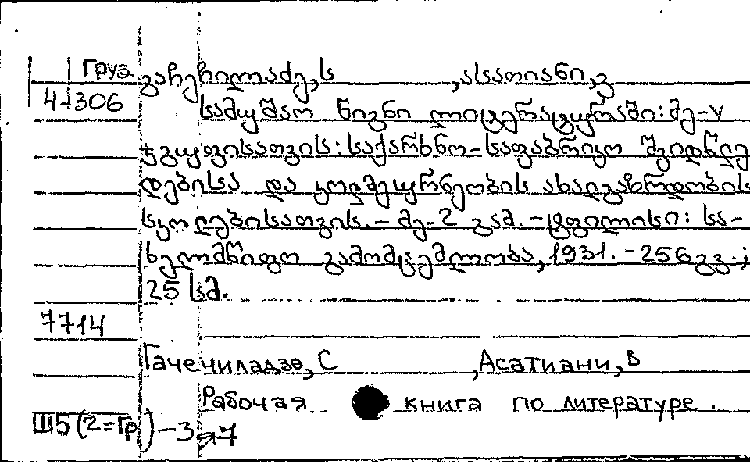 Груз გაჩეჩილაძე, ს , ასათიანი, ვ
4-306 სამუშაო წიგნი ლიტერატურაში: მე-V
ჯგუფისათვის: საქარხნო-საფაბრიკო შვიდწლე
დებისა და კოლმეურნეობის ახალგაზრდობის
სკოლებისათვის. - მე-2 გამ. - ტფილისი: სა-
ხელმწიფო გამომცემლობა, 1931. - 256 გვ.;
25 სმ.
7714
Гачечиладзе, С , Асатиани, В
Рабочая книга по литературе.
Ш5(2=Гр)-3я7